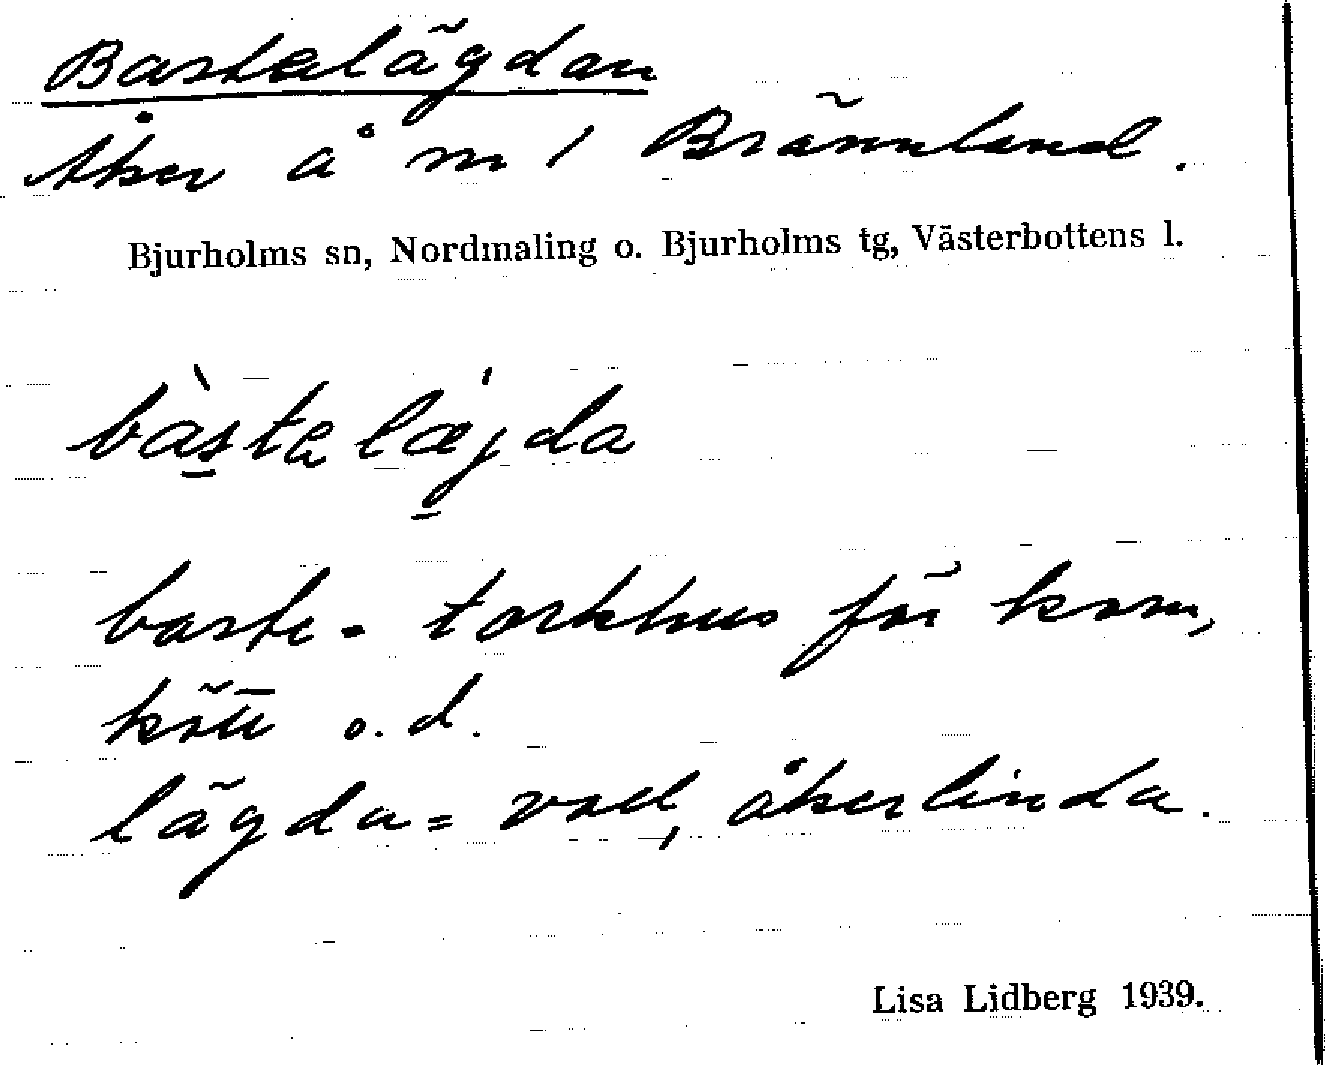 Bastelägdan
Åker å nr 1 Brännland.
Bjurholms sn, Nordmaling o. Bjurholms tg, Västerbottens l.
bàstelæ̍jda
baste = torkhus för korn,
kött o.d.
lägda = vall, åkerlinda.
Lisa Lidberg 1939.